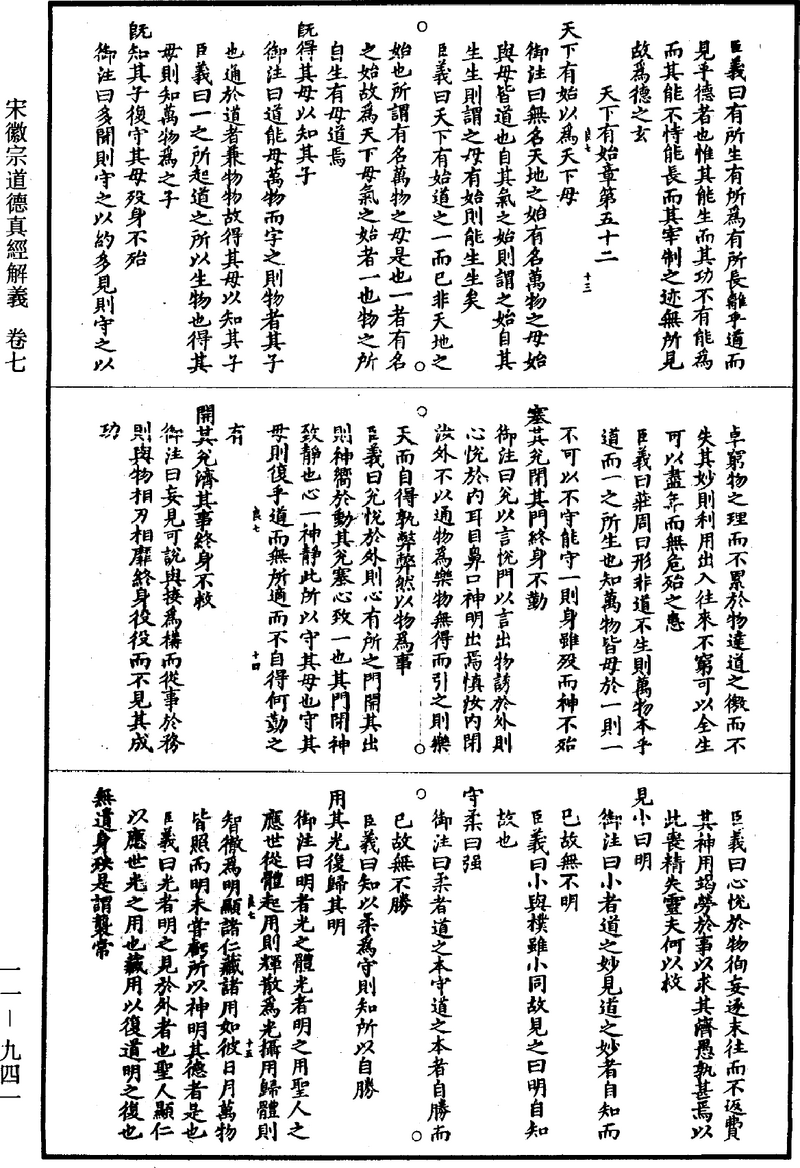 宋徽宗道德真經解義　卷七
臣義曰有所生有所為有所長離乎道而
見乎德者也惟其能生而其功不有能為
而其能不恃能長而其宰制之迹無所見
故為德之玄
天下有始章第五十二
良七
十三
天下有始以為天下母
御注曰無名天地之始有名萬物之母始
與母皆道也自其氣之始則謂之始自其
生生則謂之母有始則能生生矣
臣義曰天下有始道之一而已非天地之
始也所謂有名萬物之母是也一者有名
之始故為天下母氣之始者一也物之所
自生有母道焉
既得其母以知其子
御注曰道能母萬物而字之則物者其子
也通於道者兼物物故得其母以知其子
臣義曰一之所起道之所以生物也得其
母則知萬物為之子
既知其子復守其母歿身不殆
御注曰多聞則守之以約多見則守之以
卓窮物之理而不累於物達道之徼而不
失其妙則利用出入往來不窮可以全生
可以盡年而無危殆之患
臣義曰莊周曰形非道不生則萬物本乎
道而一之所生也知萬物皆母於一則一
不可以不守能守一則身雖歿而神不殆
塞其兌閉其門終身不勤
御注曰兌以言悅門以言出物誘於外則
心悅於內耳目鼻口神明出焉慎汝內閉
汝外不以通物為樂物無得而引之則樂
天而自得孰弊弊然以物為事
臣義曰兌悅於外則心有所之門開其出
則神嚮於動其兌塞心致一也其門閉神
致靜也心一神靜此所以守其母也守其
母則復乎道而無所適而不自得何勤之
有
良七
十四
開其兌濟其事終身不救
御注曰妄見可說與接為構而從事於務
則與物相刃相靡終身役役而不見其成
功
臣義曰心悅於物徇妄逐末往而不返費
其神用竭勞於事以求其濟愚孰甚焉以
此喪精失靈夫何以救
見小曰明
御注曰小者道之妙見道之妙者自知而
已故無不明
臣義曰小與樸雖小同故見之曰明自知
故也
守柔曰强
御注曰柔者道之本守道之本者自勝而
已故無不勝
臣義曰知以柔為守則知所以自勝
用其光復歸其明
御注曰明者光之體光者明之用聖人之
應世從體起用則輝散為光攝用歸體則
良七
十五
智徹為明顯諸仁藏諸用如彼日月萬物
皆照而明未嘗虧所以神明其德者是也
臣義曰光者明之見於外者也聖人顯仁
以應世光之用也藏用以復道明之復也
無遺身殃是謂襲常
一一－九四一